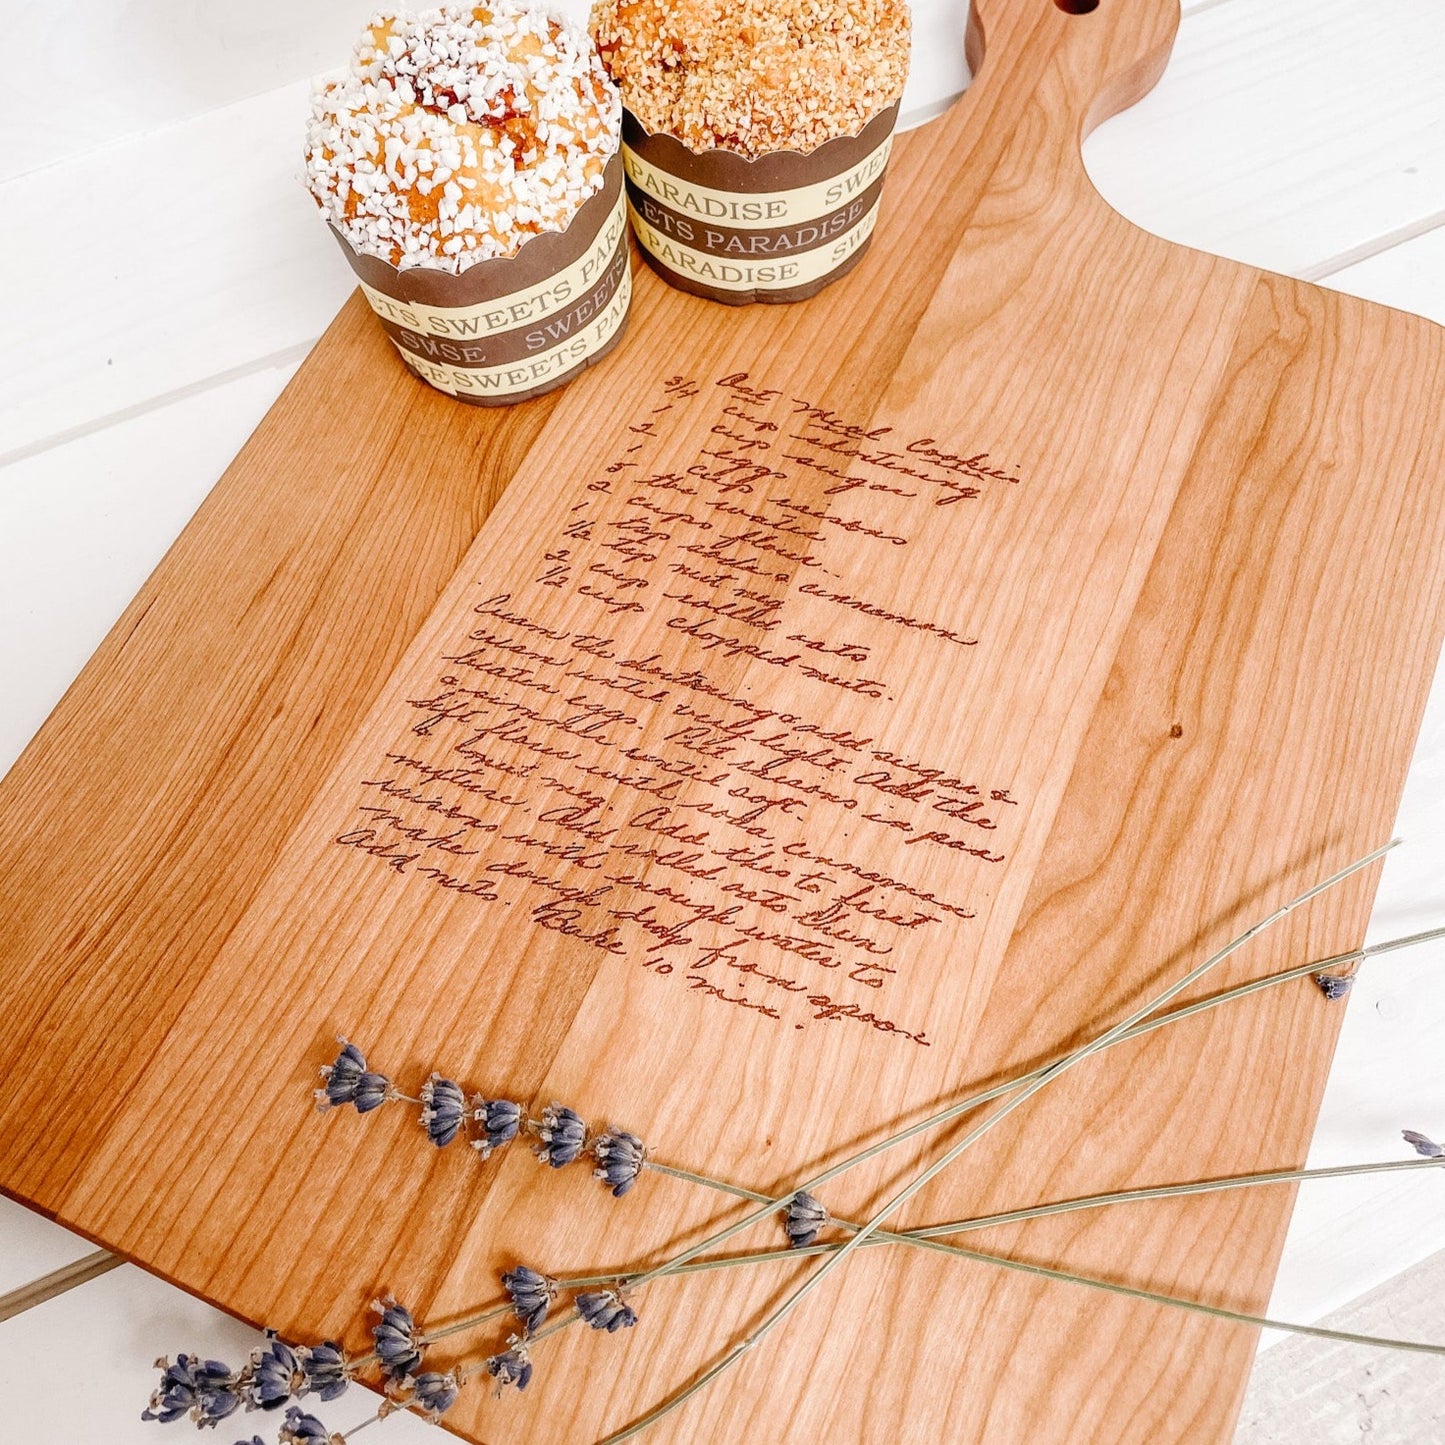 PARADISE SWE
ETS PARADISE
PARADISE SWE
ETS SWEETS PAR
SWSE SWEETS
EE SWEETS PAR
Oat Meal Cookies
3/4 cup shortening
1 cup sugar
2 eggs
1 cup raisons
5 tbs water
2 cups flour
1 tsp soda & cinnamon
1/2 tsp nut meg
2 cup rolled oats
1/2 cup chopped nuts.
Cream the shortening & add sugar &
cream until very light. Add the
beaten eggs. Put raisons in pan
& simmer until soft.
Sift flour with soda, cinnamon
& nut meg. Add this to first
mixture. Add rolled oats then
raisons with enough water to
make dough drop from spoon
Add nuts. Bake 10 min.